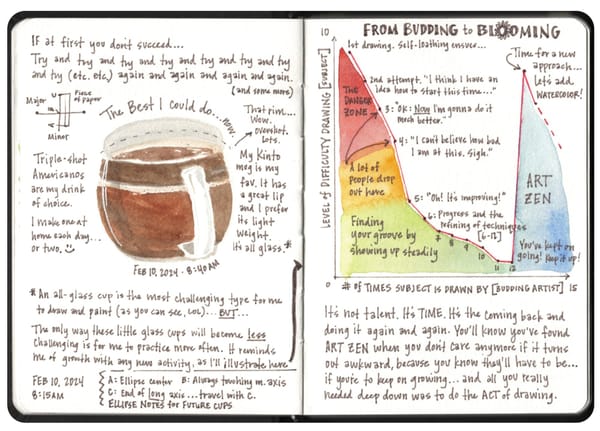 IF at first you don't succeed...
Try and try and try and try and try and try
and try (etc. etc.) again and again and again and again.
(and some more)
Major
Minor
Piece
of paper
The Best I Could do... now.
That rim...
Wow.
overshot.
Lots.
Triple-shot
Americanos
are my drink
of choice.
I make one at
home each day...
or two.
My Kinto
mug is my
fav. It has
a great lip
and I prefer
its light
weight.
It's all glass.*
FEB 10, 2024 · 8:40AM
* An all-glass cup is the most challenging type for me
to draw and paint (as you can see, LOL)... BUT...
The only way these little glass cups will become less
challenging is for me to practice more often. It reminds
me of growth with any new activity, as I'll illustrate here
FEB 10, 2024
8:15AM
A: Ellipse center B: Always touching m. axis
C: End of long axis... travel with C.
ELLIPSE NOTES FOR FUTURE CUPS
FROM BUDDING to BLOOMING
10
LEVEL OF DIFFICULTY DRAWING [SUBJECT]
1st drawing. Self-loathing ensues...
2nd attempt. "I think I have an
idea how to start this time..."
3: "OK: Now I'm gonna do it
much better."
4: "I can't believe how bad
I am at this. Sigh."
5: "Oh! It's improving!"
6: Progress and the
refining of techniques
[6-12]
7 8 9 10 11 12
THE
DANGER
ZONE
A lot of
people drop
out here
Finding
your groove by
showing up steadily
Time for a new
approach...
Let's add
WATERCOLOR!
ART
ZEN
You've kept on
going! Keep it up!
0 # OF TIMES SUBJECT IS DRAWN BY [BUDDING ARTIST] 15
It's not talent. It's TIME. It's the coming back and
doing it again and again. You'll know you've found
ART ZEN when you don't care anymore if it turns
out awkward, because you know they'll have to be...
if you're to keep on growing... and all you really
needed deep down was to do the ACT of drawing.